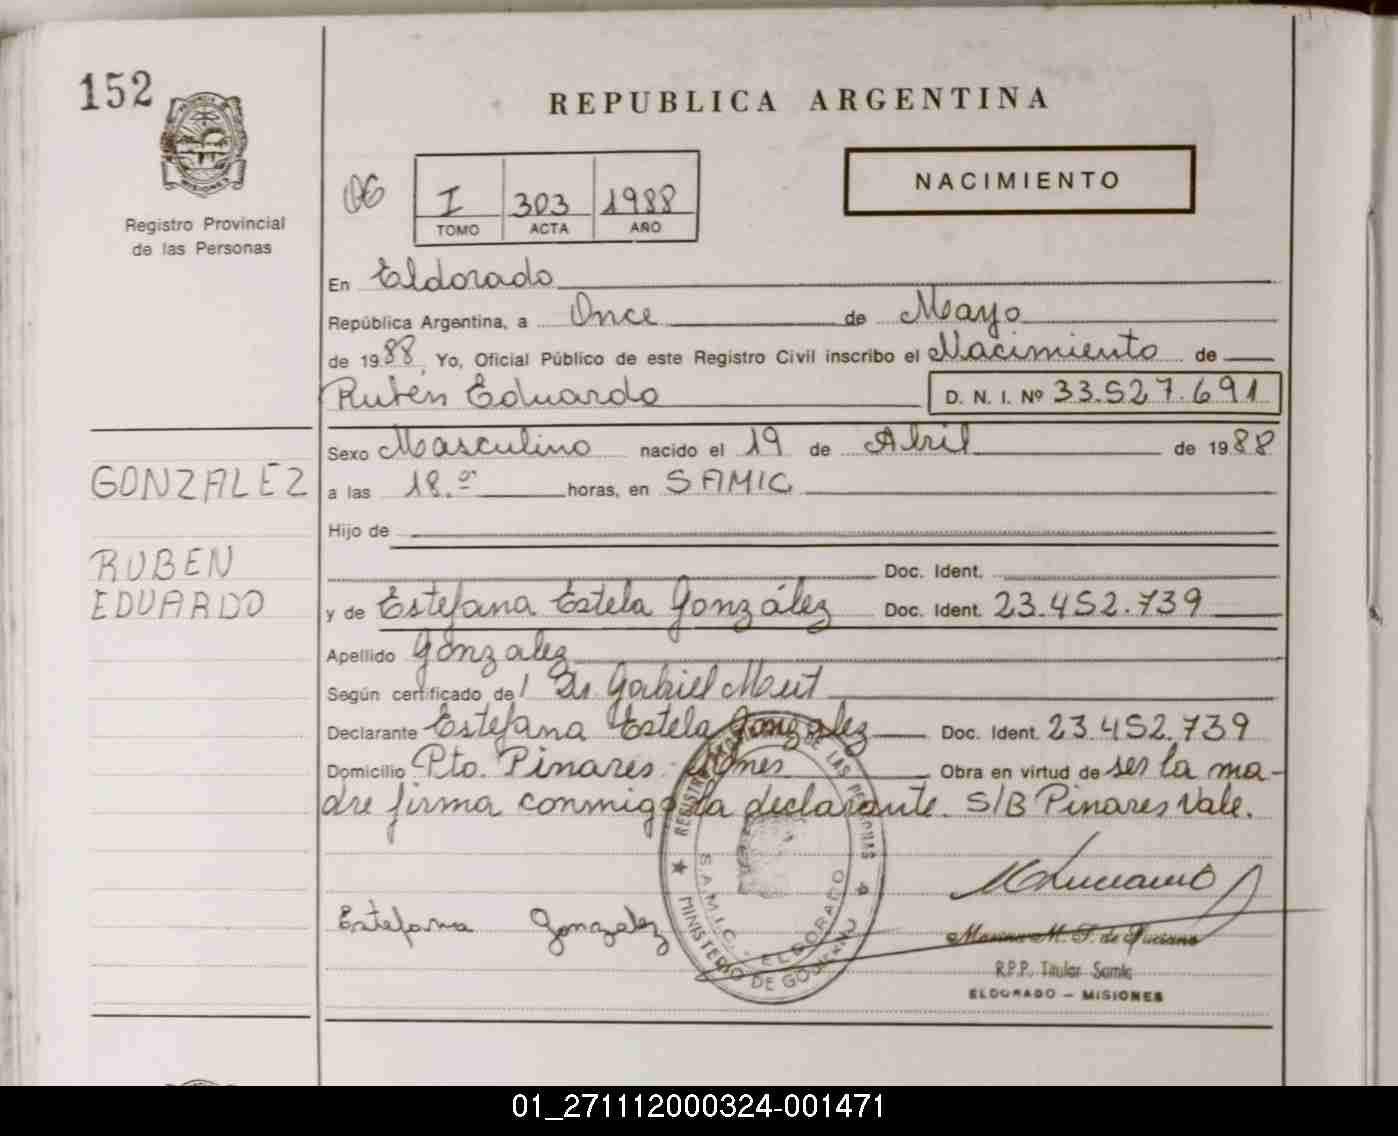 152
REPUBLICA ARGENTINA
PROVINCIA DE
MISIONES
Registro Provincial
de las Personas
06
I 303 1988
TOMO ACTA AÑO
NACIMIENTO
En Eldorado
República Argentina, a Once de Mayo
de 1988, Yo, Oficial Público de este Registro Civil inscribo el Nacimiento de
Ruben Eduardo D. N. I. Nº 33.527.691
Sexo Masculino nacido el 19 de Abril de 1988
GONZALEZ
a las 18.º horas, en SAMIC
Hijo de
RUBEN
EDUARDO
Doc. Ident.
y de Estefana Estela González Doc. Ident. 23.452.739
Apellido Gonzalez
Según certificado de/ Dr Gabriel
Declarante Estefana Estela Gonzalez Doc. Ident. 23.452.739
Domicilio Pto. Pinares Obra en virtud de ser la ma-
dre firma conmigo la declarante. S/B Pinares Vale.
REGISTRO DE LAS PERSONAS
S.A.M.I.C. - ELDORADO
MINISTERIO DE GOBIERNO
Estefana Gonzalez
M Luciano
Marina M. de Luciano
R.P.P. Titular Samic
ELDORADO - MISIONES
01_271112000324-001471